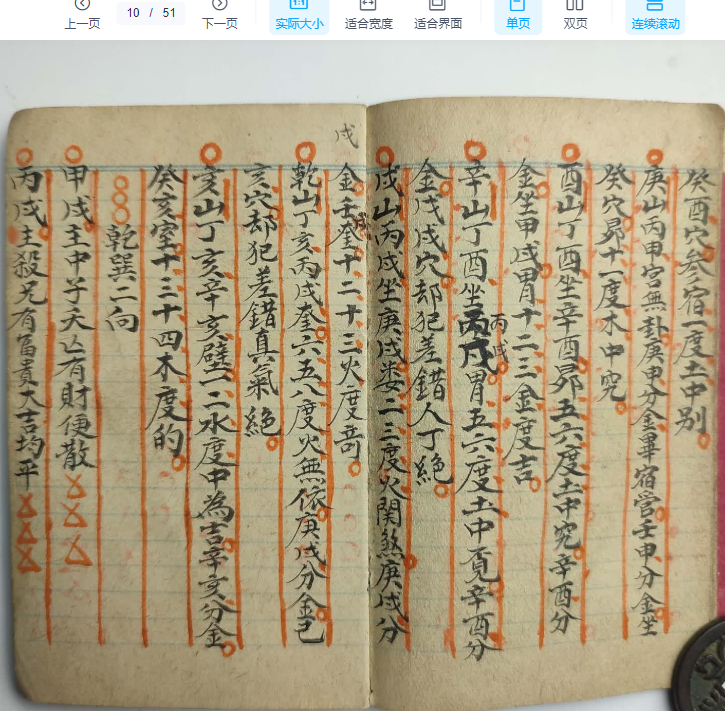 上一页
10 / 51
下一页
实际大小
适合宽度
适合界面
单页
双页
连续滚动
癸酉穴参宿一度土中别
庚山丙甲宫無卦庚申分金畢宿管壬申分金坐
癸穴昴十一度木中究
酉山丁酉坐辛酉昴五六度土中究辛酉分
金坐甲戌胃十二三金度吉
辛山丁酉坐丙戌胃五六度土中覓辛酉分
丙戌
金戌戌穴却犯差錯人丁絶
戌山丙戌坐庚戌娄二三度火関煞庚戌分
戌
金壬奎十二十三火度奇
戌
乾山丁亥丙戌奎六五八度火無依庚戌分金己
亥穴却犯差錯真氣絕
亥山丁亥辛亥壁一二水度中為吉辛亥分金
癸亥室十三十四木度的
乾巽二向
甲戌主中子夭亡有財便散
丙戌主殺兄有富貴大吉均平